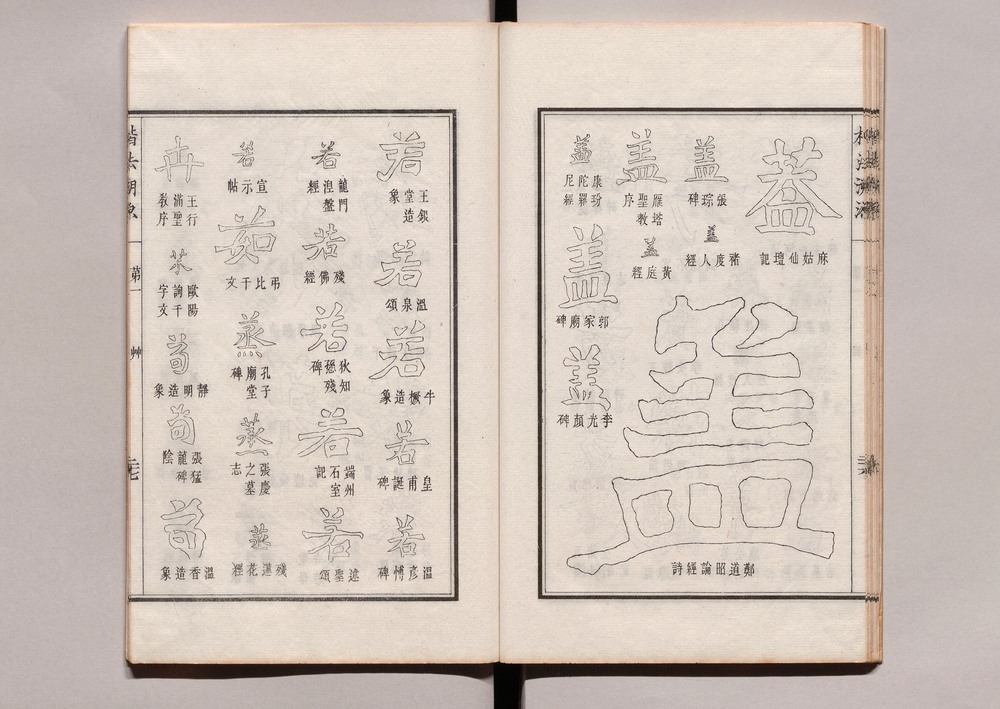 楷法溯源
蓋
麻姑仙壇記
盖
鄭道昭論經詩
盖
張琮碑
盖
褚度人經
盖
雁塔聖教序
盖
黃庭經
盖
康玢陀羅尼經
盖
郭家廟碑
盖
李光顏碑
若
王銀堂造象
若
溫泉頌
若
牛橛造象
若
皇甫誕碑
若
溫彥博碑
若
龍門湼槃經
若
殘佛經
若
狄知愻殘碑
若
端州石室記
若
述聖頌
若
宣示帖
茹
弔比干文
蒸
孔子廟堂碑
蒸
張慶之墓志
蒸
殘蓮花經
卉
王行滿聖教序
歐陽詢千字文
荀
靜明造象
荀
張猛龍碑陰
荀
溫香造象
楷法溯源
第一
艸